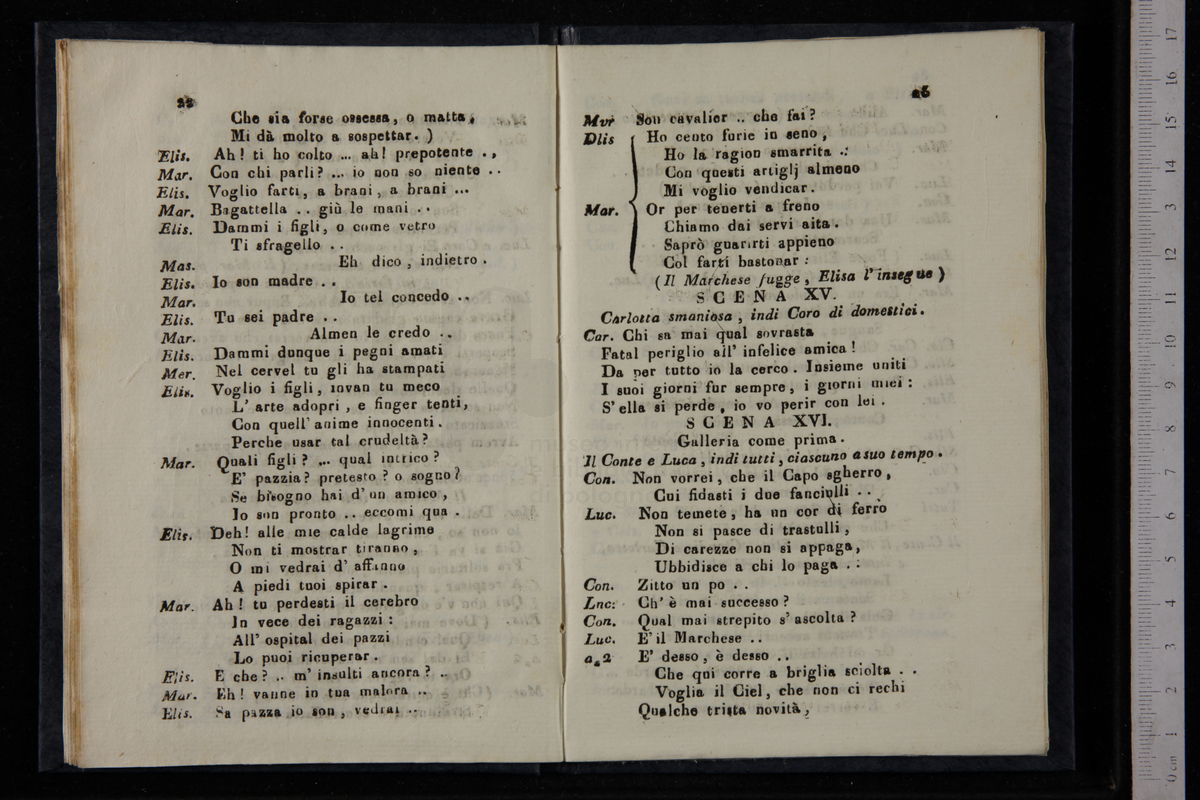 22
Che sia forse ossessa, o matta,
Mi dà molto a sospettar. )
Elis. Ah! ti ho colto ... ah! prepotente . ,
Mar. Con chi parli? ... io non so niente . .
Elis. Voglio farti, a brani, a brani ...
Mar. Bagattella . . giù le mani . .
Elis. Dammi i figli, o come vetro
Ti sfragello . .
Mas. Eh dico, indietro .
Elis. Io son madre . .
Mar. Io tel concedo . .
Elis. Tu sei padre . .
Mar. Almen le credo . .
Elis. Dammi dunque i pegni amati
Mer. Nel cervel tu gli ha stampati
Elis. Voglio i figli, invan tu meco
L' arte adopri , e finger tenti,
Con quell' anime innocenti.
Perche usar tal crudeltà?
Mar. Quali figli? ... qual intrico?
E' pazzia? pretesto? o sogno?
Se bisogno hai d' un amico ,
Io son pronto . . eccomi qua .
Elis. Deh! alle mie calde lagrime
Non ti mostrar tiranno ,
O mi vedrai d' affanno
A piedi tuoi spirar .
Mar. Ah! tu perdesti il cerebro
In vece dei ragazzi :
All' ospital dei pazzi
Lo puoi ricuperar .
Elis. E che? .. m' insulti ancora? ..
Mar. Eh! vanne in tua malora ..
Elis. Sa pazza io son , vedrai ..
23
Mvr Son cavalier .. che fai?
Dlis Ho cento furie in seno ,
Ho la ragion smarrita .:
Con questi artiglj almeno
Mi voglio vendicar .
Mar. Or per tenerti a freno
Chiamo dai servi aita .
Saprò guarirti appieno
Col farti bastonar :
( Il Marchese fugge , Elisa l' insegue )
SCENA XV.
Carlotta smaniosa , indi Coro di domestici .
Car. Chi sa mai qual sovrasta
Fatal periglio all' infelice amica!
Da per tutto io la cerco . Insieme uniti
I suoi giorni fur sempre , i giorni miei :
S' ella si perde , io vo perir con lei .
SCENA XVI.
Galleria come prima .
Il Conte e Luca , indi tutti , ciascuno a suo tempo .
Con. Non vorrei , che il Capo sgherro ,
Cui fidasti i due fanciulli . .
Luc. Non temete , ha un cor di ferro
Non si pasce di trastulli ,
Di carezze non si appaga ,
Ubbidisce a chi lo paga . :
Con. Zitto un po . .
Lnc: Ch' è mai successo?
Con. Qual mai strepito s' ascolta ?
Luc. E' il Marchese ..
a 2 E' desso , è desso ..
Che qui corre a briglia sciolta . .
Voglia il Ciel , che non ci rechi
Qualche trista novità ,
0 cm 1 2 3 4 5 6 7 8 9 10 11 12 13 14 15 16 17